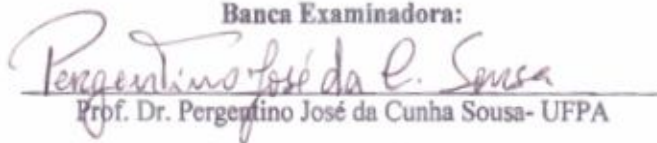 Banca Examinadora:
Pergentino José da C. Sousa
Prof. Dr. Pergentino José da Cunha Sousa- UFPA